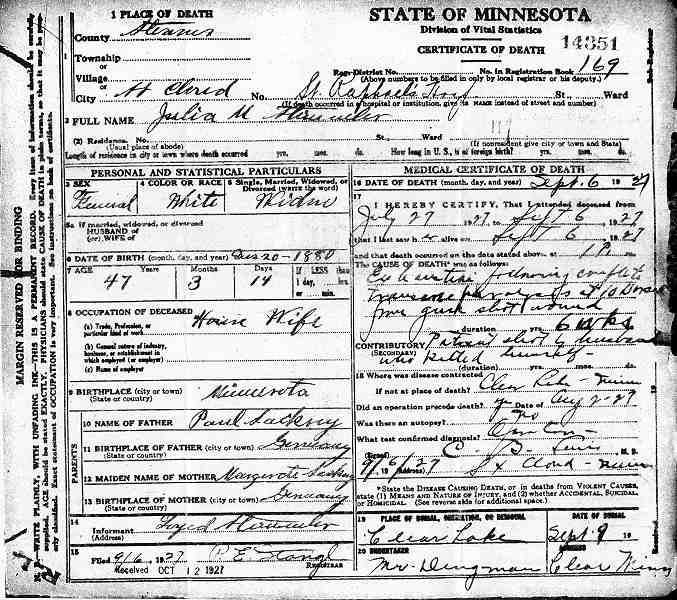 1 PLACE OF DEATH
County Stearns
Township
or
Village
or
City St Cloud No. St. Raphael's Hosp St. Ward
(If death occurred in a hospital or institution, give its NAME instead of street and number)
STATE OF MINNESOTA
Division of Vital Statistics
CERTIFICATE OF DEATH
14351
Reg. District No. No. in Registration Book 169
(Above numbers to be filled in only by local registrar or his deputy.)
2 FULL NAME Julia M
(2) Residence. No. St. Ward
(Usual place of abode) (If nonresident give city or town and State)
Length of residence in city or town where death occurred yrs. mos. ds. How long in U. S., if of foreign birth? yrs. mos. ds.
MARGIN RESERVED FOR BINDING
N. B.—WRITE PLAINLY, WITH UNFADING INK—THIS IS A PERMANENT RECORD. Every item of information should be carefully
supplied. AGE should be stated EXACTLY. PHYSICIANS should state CAUSE OF DEATH in plain terms, so that it may be properly
classified. Exact statement of OCCUPATION is very important. See instructions on back of certificate.
PERSONAL AND STATISTICAL PARTICULARS
3 SEX 4 COLOR OR RACE 5 Single, Married, Widowed, or
Divorced (write the word)
White
5a If married, widowed, or divorced
HUSBAND of
(or) WIFE of
6 DATE OF BIRTH (month, day, and year) 20-1880
7 AGE Years Months Days If LESS than
1 day, hrs.
or min.
47 3 14
8 OCCUPATION OF DECEASED
House Wife
(a) Trade, Profession, or
particular kind of work
(b) General nature of industry,
business, or establishment in
which employed (or employer)
(c) Name of employer
9 BIRTHPLACE (city or town) Minnesota
(State or country)
PARENTS
10 NAME OF FATHER Paul
11 BIRTHPLACE OF FATHER (city or town) Germany
(State or country)
12 MAIDEN NAME OF MOTHER Margarete
13 BIRTHPLACE OF MOTHER (city or town) Germany
(State or country)
14
Informant
(Address)
15
Filed 9/6, 1927
REGISTRAR
Received OCT 12 1927
MEDICAL CERTIFICATE OF DEATH
16 DATE OF DEATH (month, day, and year) Sept. 6 1927
17
I HEREBY CERTIFY, That I attended deceased from
July 27 1927 to Sept 6, 1927
that I last saw h alive on Sept 6, 1927
and that death occurred on the date stated above at
The CAUSE OF DEATH* was as follows:
Exhaustion following complete
transverse
from gun shot wound
(duration) yrs. 6 wks
CONTRIBUTORY Patient shot by husband
(SECONDARY) who killed himself -
(duration) yrs. mos. ds.
18 Where was disease contracted
if not at place of death? Clear Lake - Minn
Did an operation precede death? Date of Aug 2-27
Was there an autopsy? No
What test confirmed diagnosis?
(Signed) C. B. Lewis M. D.
9/6/27 (Address) St Cloud - Minn
*State the DISEASE CAUSING DEATH, or in deaths from VIOLENT CAUSES,
state (1) MEANS AND NATURE OF INJURY, and (2) whether ACCIDENTAL, SUICIDAL,
or HOMICIDAL. (See reverse side for additional space.)
19 PLACE OF BURIAL, CREMATION, OR REMOVAL DATE OF BURIAL
Clear Lake Sept. 9 19
20 UNDERTAKER ADDRESS
Mr. Dingman Clear Minn